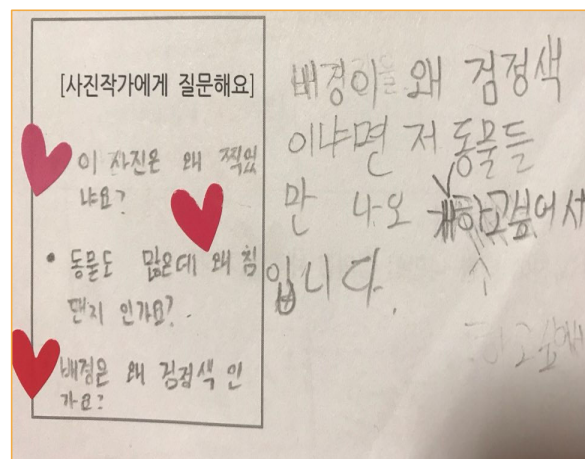 [사진작가에게 질문해요]
이 사진은 왜 찍었
냐요?
• 동물도 많은데 왜 침
팬지 인가요?
배경은 왜 검정색 인
가요?
배경이 왜 검정색
이냐면 저 동물들
만 나오게하고싶어서
입니다.